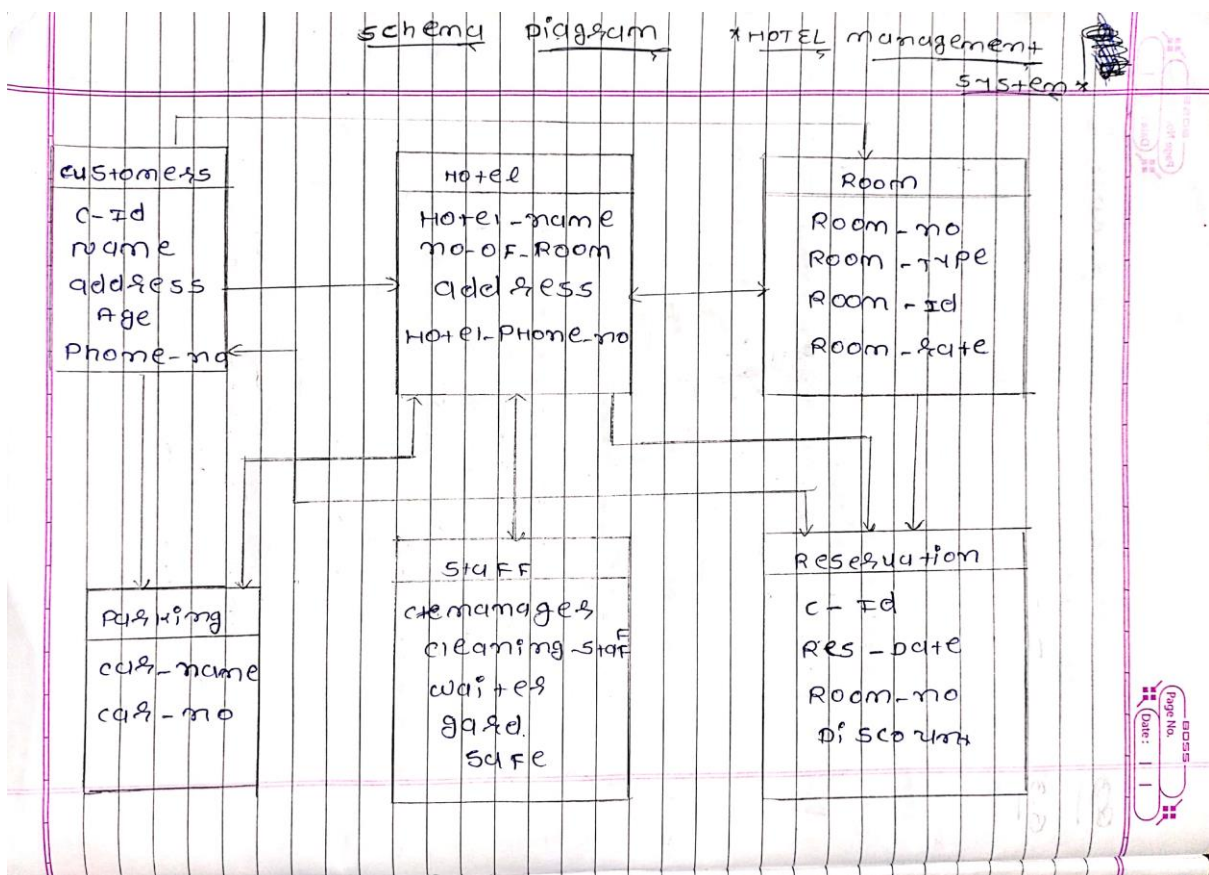 schema Diagram *HOTEL management
system*
customers
C-Id
name
address
Age
Phone-no
Hotel
Hotel-name
no-OF-Room
address
Hotel-Phone-no
Room
Room-no
Room-Type
Room-Id
Room-rate
Parking
car-name
car-no
Staff
manager
cleaning-staff
waiter
gard.
Reservation
C-Id
Res-Date
Room-no
Discount
BOSS
Page No.
Date: